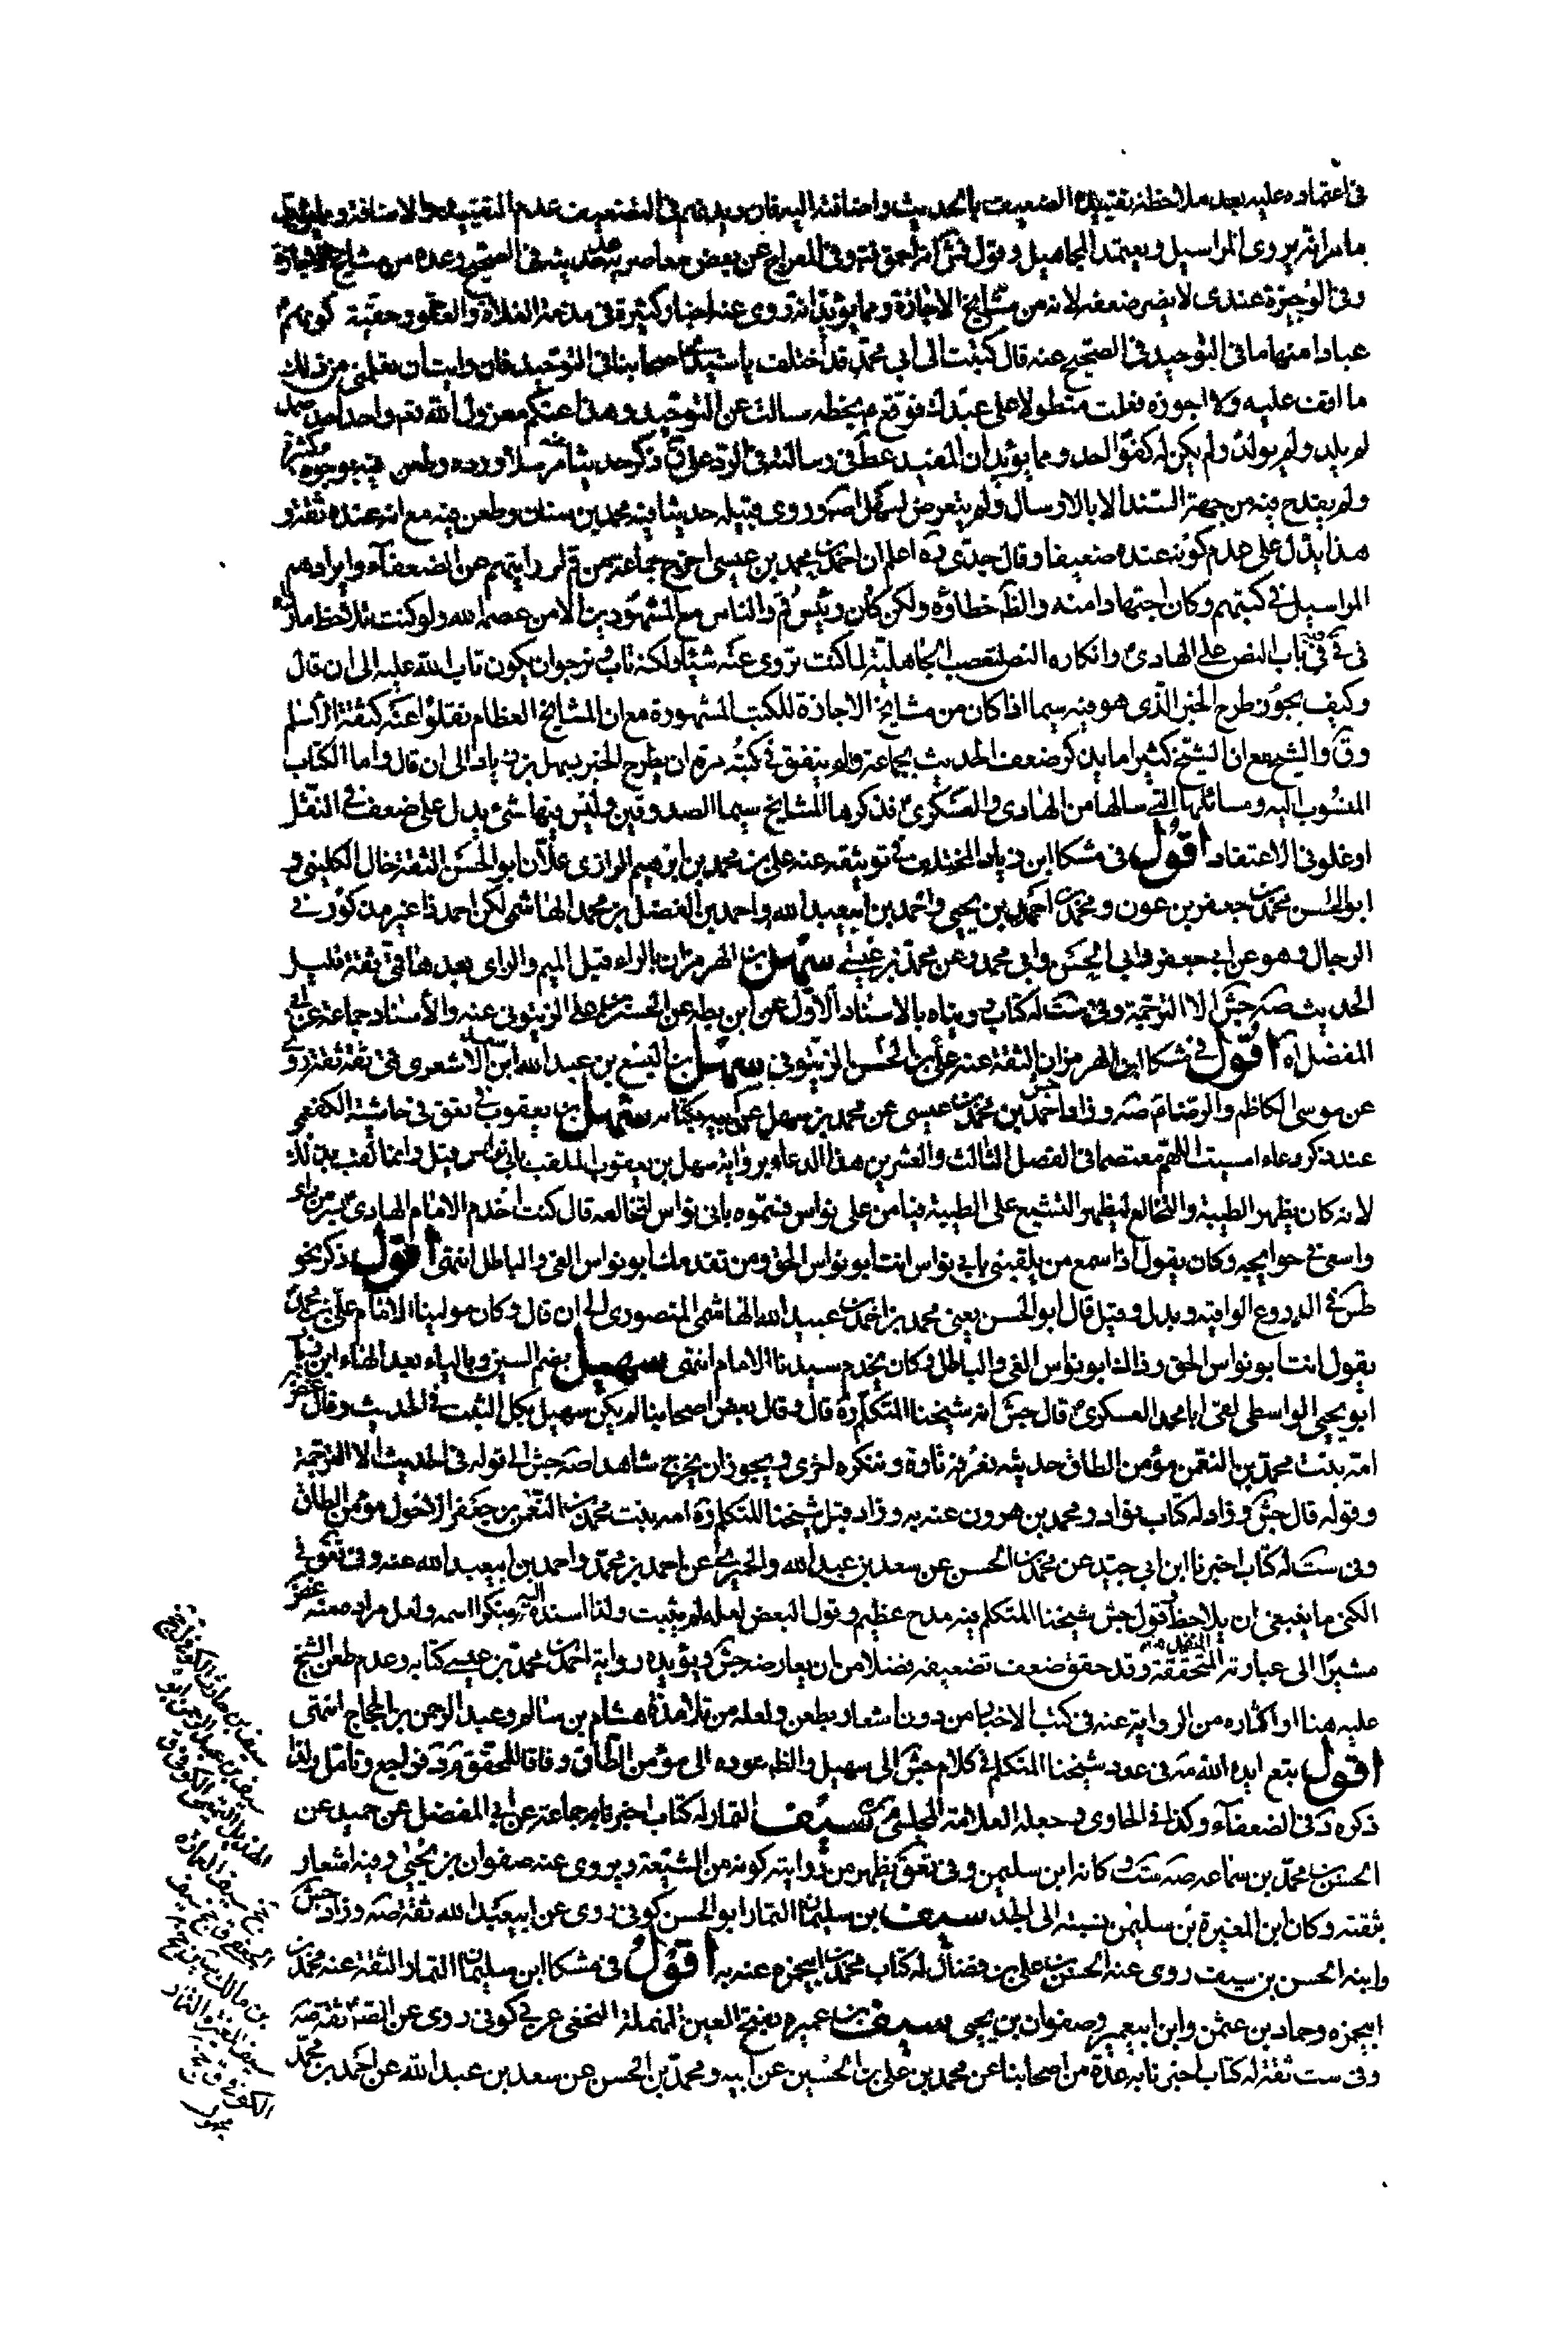 في اعتماده عليه بعد ملاحظة تقييده الضعيف بالحديث واضافته اليه فان ديدنهم في التضعيف عدم التقييد والاضافة
ما مر انه يروى المراسيل ويعتمد المجاهيل وقول جش انه احمق وفي المعراج عن بعض معاصريه عد حديثه في الصحيح وعده من مشايخ الاجازة
وفي الوجيزة عندى لا يضر ضعفه لانه من مشايخ الاجازة ومما يؤيد انه روى عنه اخبار كثيرة في مذمة الغلاة والغلو وحقية كونهم
عبادا منها ما في التوحيد في الصحيح عنه قال كتبت الى ابي محمد قد اختلف يا سيدى اصحابنا في التوحيد فان رايت ان تعلمنى من ذلك
ما اقف عليه ولا اجوزه فعلت متطولا على عبدك فوقع م بخطه سالت عن التوحيد وهذا عنكم معزول الله تعم واحد احد صمد
لم يلد ولم يولد ولم يكن له كفوا احد ومما يؤيد ان المفيد عط في رسالته في الرد على ق ذكر حديثا مرسلا ورده وطعن فيه بوجوه كثيرة
ولم يقدح فيه من جهة السند الا بالارسال ولم يتعرض لسهل اصلا وروى قبيله حديثا فيه محمد بن سنان وطعن فيه مع انه عنده ثقة و
هذا يدل على عدم كونه عنده ضعيفا وقال جدى ره اعلم ان احمد بن محمد بن عيسى اخرج جماعة من قم لروايتهم عن الضعفآء وايرادهم
المراسيل في كتبهم وكان اجتهادا منه والظ خطاؤه ولكن كان رئيس قم والناس مع المشهورين الا من عصمه الله ولو كنت تلاحظ ما رواه
في في باب النص على الهادى وانكاره النص لتعصب الجاهلية لما كنت تروى عنه شيئا ولكنه تاب ونرجو ان يكون تاب الله عليه الى ان قال
وكيف يجوز طرح الخبر الذى هو فيه سيما اذا كان من مشايخ الاجازة للكتب المشهورة مع ان المشايخ العظام نقلوا عنه كثقة الاسلم
وق والشيخ مع ان الشيخ كثيرا ما يذكر ضعف الحديث بجماعة ولم يتفق في كتبه مرة ان يطرح الخبر بسهل بن زياد الى ان قال واما الكتاب
المنسوب اليه ومسائلها التي سالها من الهادى والعسكرى فذكرها المشايخ سيما الصدوقين وليس فيها شئ يدل على ضعف في النقل
او غلو في الاعتقاد اقول في مشكا ابن زياد المختلف في توثيقه عنه على بن محمد بن ابرهيم الرازى علان ابو الحسن الثقة خال الكلينى و
ابو الحسن محمد بن جعفر بن عون ومحمد بن احمد بن يحيى واحمد بن ابيعبد الله واحمد بن الفضل بن محمد الهاشمى لكن احمد ذا غير مذكور في
الرجال وهو عن ابي جعفر وابي الحسن وابي محمد وعن محمد بن عيسى سهل بن الهرمزان بالراء قبل الميم والزاى بعدها قمى ثقة قليل
الحديث صه جش الا الترجمة وفي ست له كتاب رويناه بالاسناد الاول عن ابن بطه عن الحسن بن على الزيتونى عنه والاسناد جماعة عن ابي
المفضل اه اقول في مشكا ابن الهرمزان الثقة عنه على بن الحسن الزيتونى سهل بن اليسع بن عبد الله ابن سعد الاشعرى قمى ثقة ثقة روى
عن موسى الكاظم والرضا م صه وزاد جش احمد بن محمد بن عيسى عن محمد بن سهل عن ابيه بكتابه سهل بن يعقوب في تعق في حاشية الكفعمى
عند ذكر دعاء امسيت اللهم معتصما في الفصل الثالث والعشرين هذا الدعاء برواية سهل بن يعقوب الملقب بابي نواس قيل وانما لقب بذلك
لانه كان يظهر الطيبة والتخالع ليظهر التشيع على الطيبة فيامن على نواس فسموه بابى نواس لتخالعه قال كنت اخدم الامام الهادى بسر من راى
واسعى في حوايجه وكان يقول اذا سمع من يلقبنى بابي نواس انت ابو نواس الحق ومن تقدمك ابو نواس الغى والباطل انتهى اقول ذكر نحو
طس في الدروع الواقية وبدل وقيل قال ابو الحسن يعنى محمد بن احمد بن عبيد الله الهاشمى المنصورى الى ان قال وكان مولينا الامام على بن محمد
يقول انت ابو نواس الحق وذاك ابو نواس الغى والباطل وكان يخدم سيدنا الامام انتهى سهيل بضم السين وبالياء بعد الهاء ابن زياد
ابو يحيى الواسطى لقى ابا محمد العسكرى قال جش انه شيخنا المتكلم ره قال وقال بعض اصحابنا لم يكن سهيل بكل الثبت في الحديث وقال غض
امه بنت محمد بن النعمن مؤمن الطاق حديثه نعرفه تارة وننكره اخرى ويجوز ان يخرج شاهدا صه جش الى قوله في الحديث الا الترجمة
وقوله قال جش وزاد له كتاب نوادر محمد بن هرون عنه به وزاد قبل شيخنا المتكلم ره امه بنت محمد بن النعمن بن جعفر الاحول مؤمن الطاق
وفي ست له كتاب اخبرنا ابن ابي جيد عن محمد بن الحسن عن سعد بن عبد الله والحميرى عن احمد بن محمد واحمد بن ابيعبد الله عنه وفي تعق في
الكنى ما ينبغى ان يلاحظ وقول جش شيخنا المتكلم فيه مدح عظيم وقول البعض لعله لم يثبت ولذا اسنده اليه منكرا اسمه ولعل مراده منه غض
مشيرا الى عبارته المتحققة وقد حقق ضعف تضعيفه فضلا من ان يعارضه جش ويؤيده رواية احمد بن محمد بن عيسى كتابه وعدم طعن الشيخ
عليه هنا او اكثاره من الرواية عنه في كتب الاخبار من دون اشعار بطعن ولعله من تلامذة هشام بن سالم وعبد الرحمن بن الحجاج انتهى
اقول تبع ايده الله مه في عود شيخنا المتكلم في كلام جش الى سهيل والظ عوده الى مؤمن الطاق وفاقا للمحقق مه د فراجع وتامل ولذا
ذكره د في الضعفآء وكذا في الحاوى وجعله العلامة المجلسى م سيف التمار له كتاب اخبرنا به جماعة عن ابي المفضل عن حميد عن
الحسن بن محمد بن سماعه صه ست وكانه ابن سليمن وفي تعق يظهر من روايته كونه من الشيعة ويروى عنه صفوان بن يحيى وفيه اشعار
بثقته وكان ابن المغيرة بن سليمن بنسبته الى الجد سيف بن سليمان التمار ابو الحسن كوفى روى عن ابيعبد الله ثقة صه وزاد جش
وابنه الحسن بن سيف روى عنه الحسن بن على بن فضال له كتاب محمد بن ابيحمزه عنه به اقول في مشكا ابن سليمان التمار الثقة عنه محمد بن
ابيحمزه وحماد بن عثمن وابن ابيعمير وصفوان بن يحيى سيف بن عميره بفتح العين المهملة النخعى عربي كوفى روى عن الصم ثقة صه
وفي ست ثقة له كتاب اخبرنا به عدة من اصحابنا عن محمد بن على بن الحسين عن ابيه ومحمد بن الحسن عن سعد بن عبد الله عن احمد بن محمد